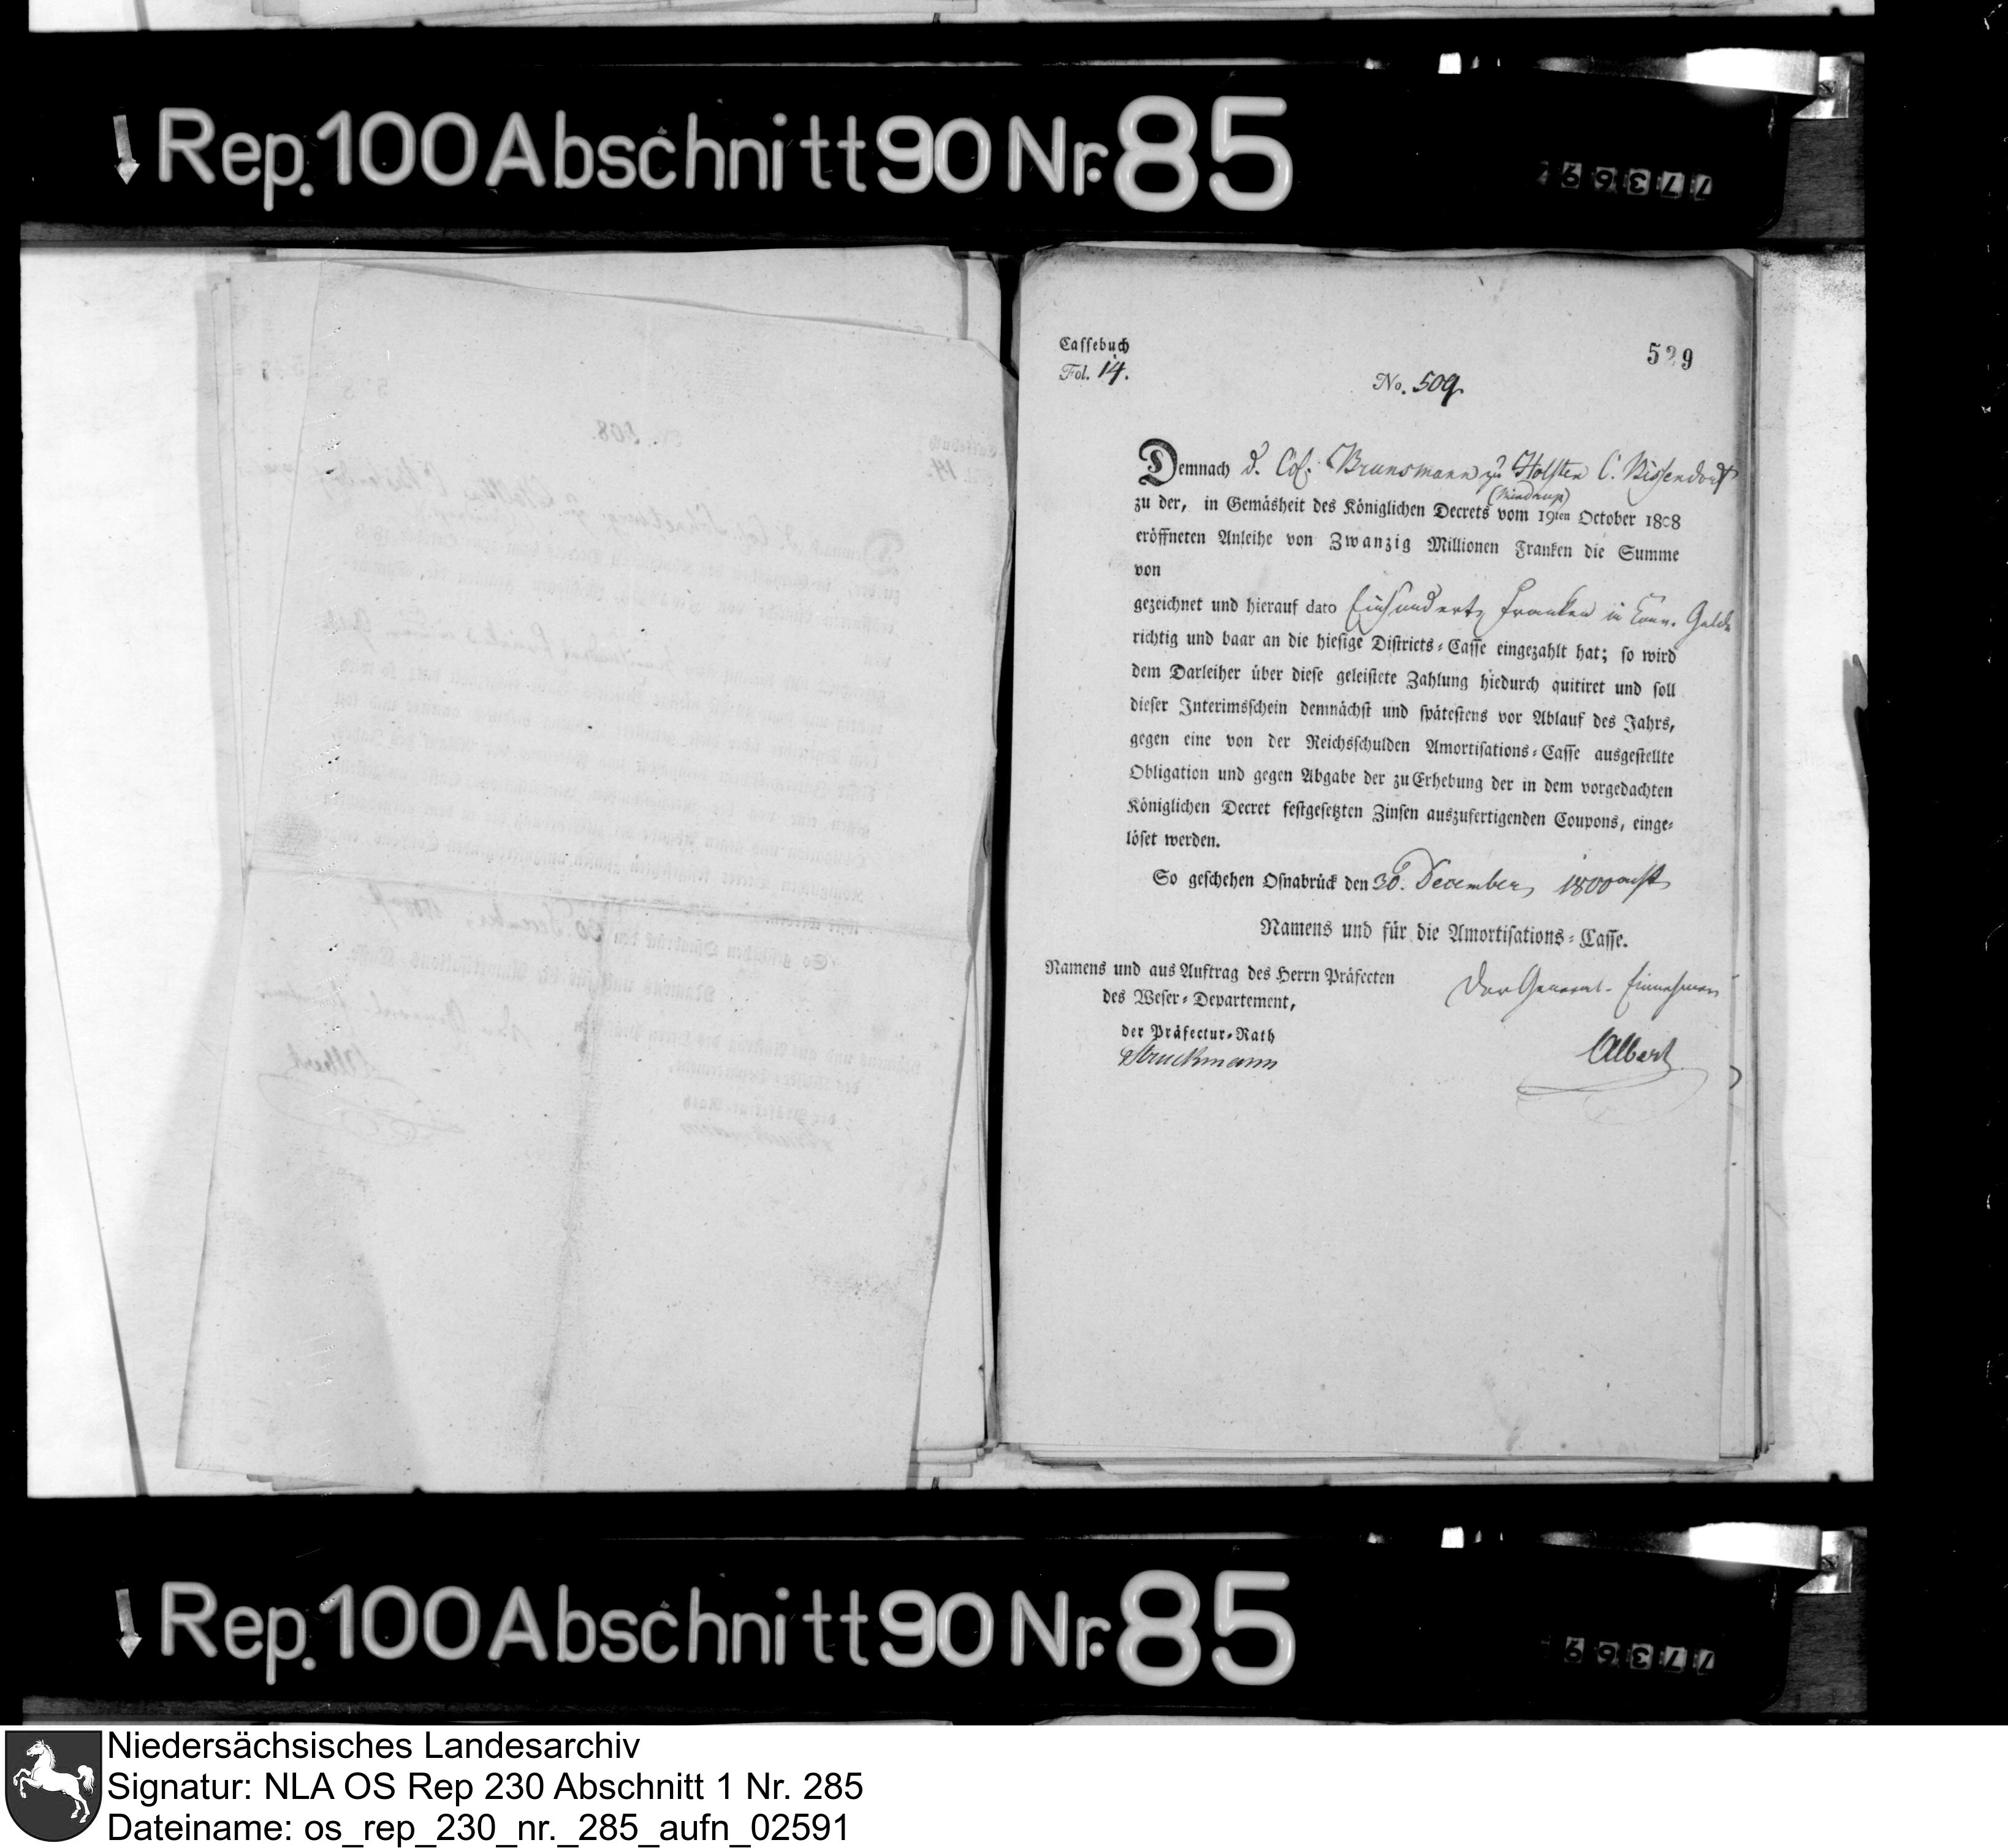 Rep. 100 Abschnitt 90 Nr. 85
77369
Cassebuch
Fol. 14.
529
No. 509.
Demnach d. Col. Brunsmann zu Holsten C. Bissendorf
(Mindrup)
zu der, in Gemäsheit des Königlichen Decrets vom 19ten October 1808
eröffneten Anleihe von Zwanzig Millionen Franken die Summe
von
gezeichnet und hierauf dato Einhundert Franken in Conv. Gelde
richtig und baar an die hiesige Districts-Casse eingezahlt hat; so wird
dem Darleiher über diese geleistete Zahlung hiedurch quitiret und soll
dieser Interimsschein demnächst und spätestens vor Ablauf des Jahrs,
gegen eine von der Reichsschulden Amortisations-Casse ausgestellte
Obligation und gegen Abgabe der zu Erhebung der in dem vorgedachten
Königlichen Decret festgesetzten Zinsen auszufertigenden Coupons, einge-
löset werden.
So geschehen Osnabrück den 30. December 1800 acht
Namens und für die Amortisations-Casse.
Namens und aus Auftrag des Herrn Präfecten
des Weser-Departement,
der Präfectur-Rath
Struckmann
Der General-Einnehmer
Albert
Rep. 100 Abschnitt 90 Nr. 85
77369
Niedersächsisches Landesarchiv
Signatur: NLA OS Rep 230 Abschnitt 1 Nr. 285
Dateiname: os_rep_230_nr._285_aufn_02591